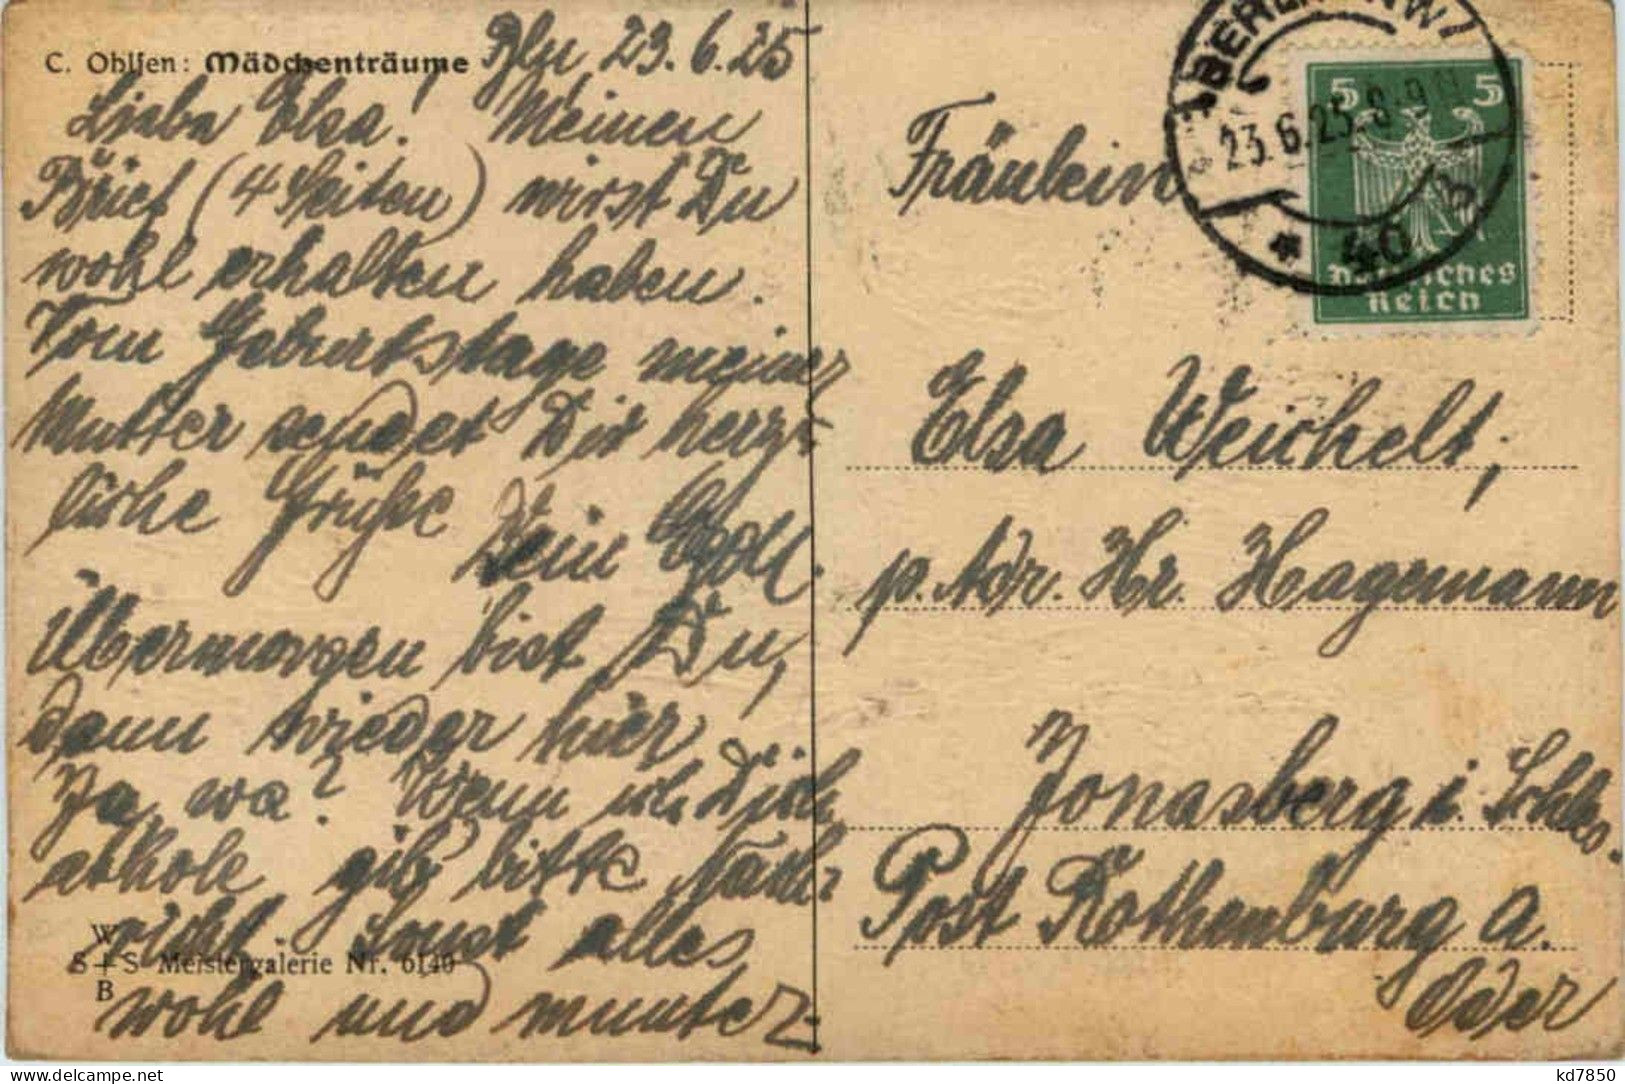 C. Ohlsen: Mädchenträume
Bln 23. 6. 25
Liebe Elsa! Meinen
Brief (4 Seiten) wirst Du
wohl erhalten haben.
Vom Geburtstage meiner
Mutter sendet Dir herz-
liche Grüße
Dein
Übermorgen bist Du,
dann wieder hier
Ja, wa? Wenn ich Dich
abhole, gib bitte Nach-
richt. Sonst alles
wohl und munter
W
S+S Meistergalerie Nr. 6140
B
BERLIN NW
23.6.25.8-9N
* 40 B
5 5
Deutsches
Reich
Fräulein
Elsa Weichelt,
p. Adr. Hr. Hagemann
Jonasberg i. Schles.
Post Rothenburg a.
Oder
kd7850